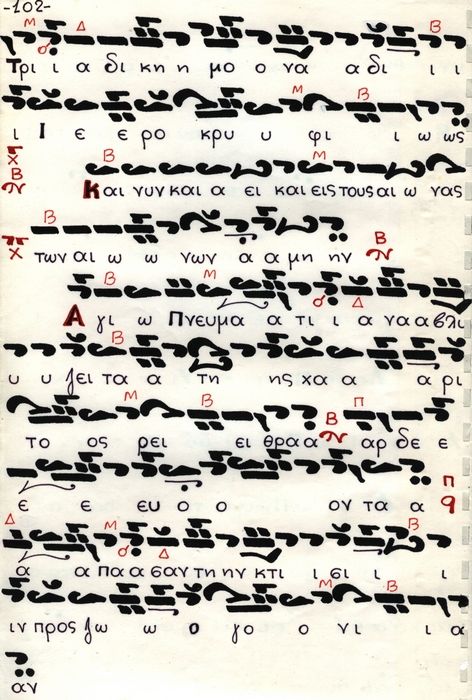 -102-
Τρι ι α δι κη η μο ο να α δι ι ι
ι Ι ε ε ρο κρυ υ φι ι ω ως
Και νυν και α ει και εις τους αι ω νας
των αι ω ω νων α α μη ην
Α γι ω Πνευμα α τι ι α να α βλι
υ υ ζει τα α τη ης χα α α ρι
το ος ρει ει θρα α αρ δε ε
ε ε ε ευ ο ο ον τα α
α α πα α σαν τη ην κτι ι σι ι ι
ιν προς ζω ω ο γο ο νι ι α
αν